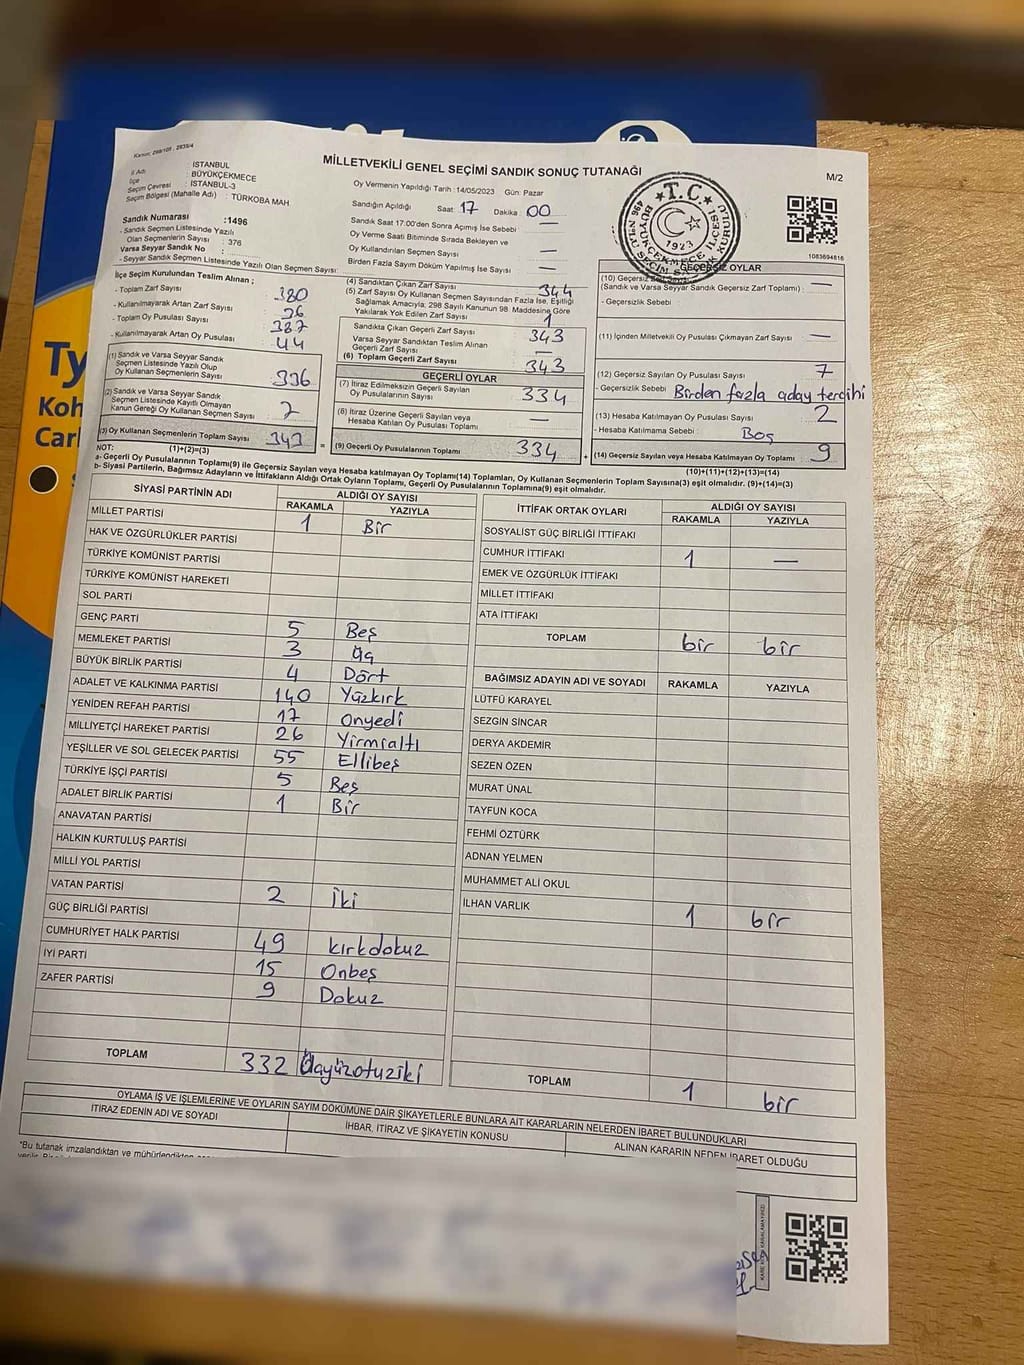 Kanun: 298/105 , 2839/4
MİLLETVEKİLİ GENEL SEÇİMİ SANDIK SONUÇ TUTANAĞI
M/2
İl Adı : İSTANBUL
İlçe : BÜYÜKÇEKMECE
Seçim Çevresi : İSTANBUL-3
Seçim Bölgesi (Mahalle Adı) : TÜRKOBA MAH
Sandık Numarası :1496
- Sandık Seçmen Listesinde Yazılı
Olan Seçmenlerin Sayısı : 376
Varsa Seyyar Sandık No :
- Seyyar Sandık Seçmen Listesinde Yazılı Olan Seçmen Sayısı:
Oy Vermenin Yapıldığı Tarih :14/05/2023 Gün: Pazar
Sandığın Açıldığı Saat 17 Dakika 00
Sandık Saat 17.00'den Sonra Açımış İse Sebebi : —
Oy Verme Saati Bitiminde Sırada Bekleyen ve
Oy Kullandırılan Seçmen Sayısı : —
Birden Fazla Sayım Döküm Yapılmış İse Sayısı : —
T.C.
BÜYÜKÇEKMECE İLÇESİ
1923
1083694816
İlçe Seçim Kurulundan Teslim Alınan ;
- Toplam Zarf Sayısı : 380
- Kullanılmayarak Artan Zarf Sayısı : 36
- Toplam Oy Pusulası Sayısı : 387
- Kullanılmayarak Artan Oy Pusulası : 44
(1) Sandık ve Varsa Seyyar Sandık
Seçmen Listesinde Yazılı Olup
Oy Kullanan Seçmenlerin Sayısı : 336
(2) Sandık ve Varsa Seyyar Sandık
Seçmen Listesinde Kayıtlı Olmayan
Kanun Gereği Oy Kullanan Seçmen Sayısı : 7
(3) Oy Kullanan Seçmenlerin Toplam Sayısı : 343
(1)+(2)=(3)
(4) Sandıktan Çıkan Zarf Sayısı : 344
(5) Zarf Sayısı Oy Kullanan Seçmen Sayısından Fazla İse, Eşitliği
Sağlamak Amacıyla; 298 Sayılı Kanunun 98. Maddesine Göre
Yakılarak Yok Edilen Zarf Sayısı : 1
Sandıkta Çıkan Geçerli Zarf Sayısı : 343
Varsa Seyyar Sandıktan Teslim Alınan
Geçerli Zarf Sayısı : —
(6) Toplam Geçerli Zarf Sayısı : 343
GEÇERLİ OYLAR
(7) İtiraz Edilmeksizin Geçerli Sayılan
Oy Pusulalarının Sayısı : 334
(8) İtiraz Üzerine Geçerli Sayılan veya
Hesaba Katılan Oy Pusulası Toplamı : —
= (9) Geçerli Oy Pusulalarının Toplamı : 334
GEÇERSİZ OYLAR
(Sandık ve Varsa Seyyar Sandık Geçersiz Zarf Toplamı) : —
- Geçersizlik Sebebi :
(11) İçinden Milletvekili Oy Pusulası Çıkmayan Zarf Sayısı : —
(12) Geçersiz Sayılan Oy Pusulası Sayısı : 7
- Geçersizlik Sebebi : Birden fazla aday tercihi
(13) Hesaba Katılmayan Oy Pusulası Sayısı : 2
- Hesaba Katılmama Sebebi : Boş
+ (14) Geçersiz Sayılan veya Hesaba Katılmayan Oy Toplamı : 9
(10)+(11)+(12)+(13)=(14)
NOT:
a- Geçerli Oy Pusulalarının Toplamı(9) ile Geçersiz Sayılan veya Hesaba katılmayan Oy Toplamı(14) Toplamları, Oy Kullanan Seçmenlerin Toplam Sayısına(3) eşit olmalıdır. (9)+(14)=(3)
b- Siyasi Partilerin, Bağımsız Adayların ve İttifakların Aldığı Ortak Oyların Toplamı, Geçerli Oy Pusulalarının Toplamına(9) eşit olmalıdır.
SİYASİ PARTİNİN ADI ALDIĞI OY SAYISI
RAKAMLA YAZIYLA
MİLLET PARTİSİ 1 Bir
HAK VE ÖZGÜRLÜKLER PARTİSİ
TÜRKİYE KOMÜNİST PARTİSİ
TÜRKİYE KOMÜNİST HAREKETİ
SOL PARTİ
GENÇ PARTİ 5 Beş
MEMLEKET PARTİSİ 3 Üç
BÜYÜK BİRLİK PARTİSİ 4 Dört
ADALET VE KALKINMA PARTİSİ 140 Yüzkırk
YENİDEN REFAH PARTİSİ 17 Onyedi
MİLLİYETÇİ HAREKET PARTİSİ 26 Yirmialtı
YEŞİLLER VE SOL GELECEK PARTİSİ 55 Ellibeş
TÜRKİYE İŞÇİ PARTİSİ 5 Beş
ADALET BİRLİK PARTİSİ 1 Bir
ANAVATAN PARTİSİ
HALKIN KURTULUŞ PARTİSİ
MİLLİ YOL PARTİSİ
VATAN PARTİSİ 2 İki
GÜÇ BİRLİĞİ PARTİSİ
CUMHURİYET HALK PARTİSİ 49 kırkdokuz
İYİ PARTİ 15 Onbeş
ZAFER PARTİSİ 9 Dokuz
TOPLAM 332 Üçyüzotuziki
İTTİFAK ORTAK OYLARI ALDIĞI OY SAYISI
RAKAMLA YAZIYLA
SOSYALİST GÜÇ BİRLİĞİ İTTİFAKI
CUMHUR İTTİFAKI 1 —
EMEK VE ÖZGÜRLÜK İTTİFAKI
MİLLET İTTİFAKI
ATA İTTİFAKI
TOPLAM bir bir
BAĞIMSIZ ADAYIN ADI VE SOYADI RAKAMLA YAZIYLA
LÜTFÜ KARAYEL
SEZGİN SİNCAR
DERYA AKDEMİR
SEZEN ÖZEN
MURAT ÜNAL
TAYFUN KOCA
FEHMİ ÖZTÜRK
ADNAN YELMEN
MUHAMMET ALİ OKUL
İLHAN VARLIK 1 bir
TOPLAM 1 bir
OYLAMA İŞ VE İŞLEMLERİNE VE OYLARIN SAYIM DÖKÜMÜNE DAİR ŞİKAYETLERLE BUNLARA AİT KARARLARIN NELERDEN İBARET BULUNDUKLARI
İTİRAZ EDENİN ADI VE SOYADI İHBAR, İTİRAZ VE ŞİKAYETİN KONUSU ALINAN KARARIN NEDEN İBARET OLDUĞU
*Bu tutanak imzalandıktan ve mühürlendikten
Ty
Koh
Carl